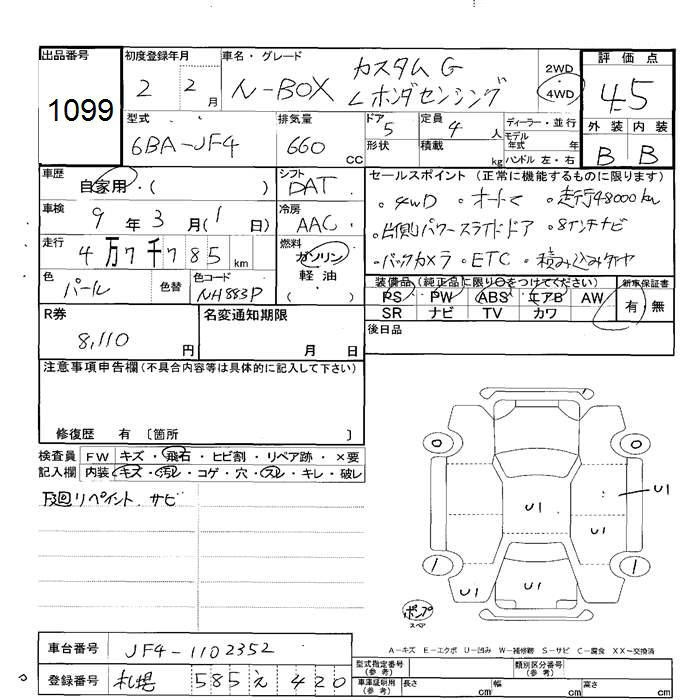 出品番号 初度登録年月 車名・グレード 2WD 評価点
1099 2 2月 N-BOX カスタムG 4WD 4.5
Lホンダセンシング
型式 排気量 ドア 5 定員 4人 ディーラー・並行 外装 内装
6BA-JF4 660cc 形状 積載 kg モデル年式 年 B B
ハンドル 左・右
車歴 シフト セールスポイント (正常に機能するものに限ります)
自家用・( ) DAT 。4WD 。オートs 。走行48000km
車検 9年3月(1日) 冷房 AAC 。片側パワースライドドア 。8インチナビ
走行 4万7千785km 燃料 ガソリン・軽油・( ) 。バックカメラ 。ETC 。積み込みタイヤ
色 パール 色替 色コード NH883P 装備品(純正品に限り○をつけてください) 新車保証書
PS・PW・ABS・エアB・AW 有・無
SR・ナビ・TV・カワ
R券 8,110円 名変通知期限 月 日 後日品
注意事項申告欄(不具合内容等は具体的に記入して下さい)
修復歴 有 〔箇所 〕
検査員 FW キズ・飛石・ヒビ割・リペア跡・×要
記入欄 内装 キズ・汚レ・コゲ・穴・スレ・キレ・破レ
下回リペイント、サビ
0 0
U1 U1 U1
1 1
U1 U1
ポンプ
スペア
A－キズ E－エクボ U－凹み W－補修跡 S－サビ C－腐食 XX－交換済
車台番号 JF4-1102352
型式指定番号(参考) 類別区分番号(参考)
登録番号 札幌 585 え 420
車庫証明用(参考) 長さ cm 幅 cm 高さ cm